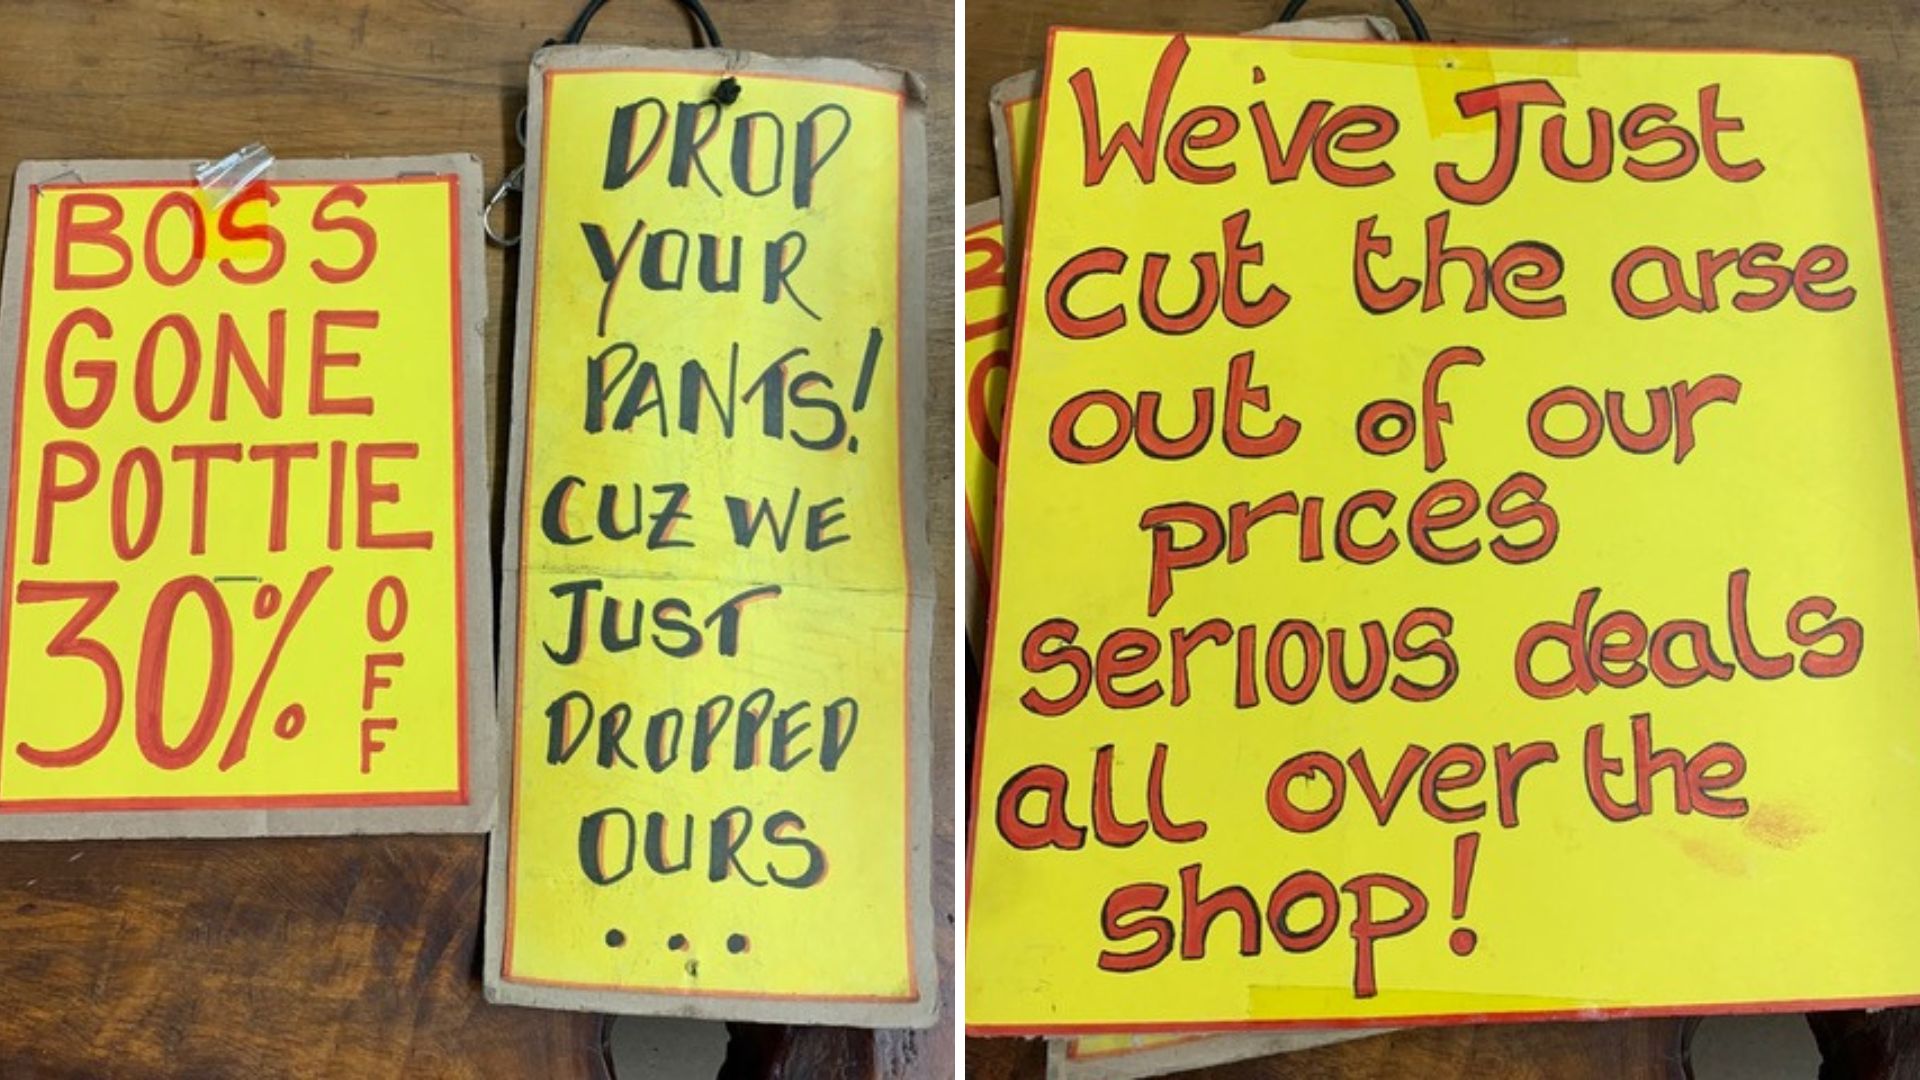 BOSS
GONE
POTTIE
30% OFF
DROP
YOUR
PANTS!
CUZ WE
JUST
DROPPED
OURS
...
We've Just
cut the arse
out of our
prices
serious deals
all over the
shop!